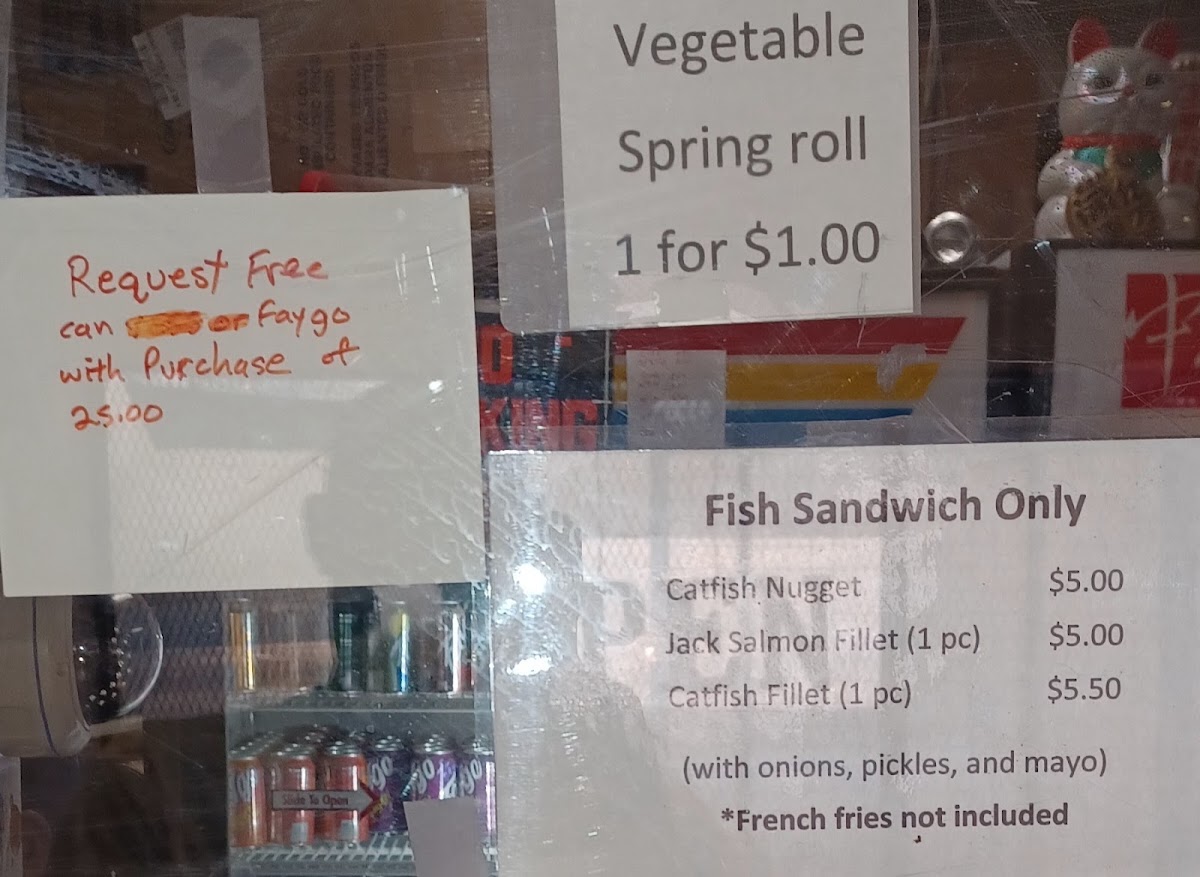 Vegetable
Spring roll
1 for $1.00
Request Free
can or Faygo
with Purchase of
25.00
KING
Fish Sandwich Only
Catfish Nugget $5.00
Jack Salmon Fillet (1 pc) $5.00
Catfish Fillet (1 pc) $5.50
(with onions, pickles, and mayo)
*French fries not included
Slide To Open